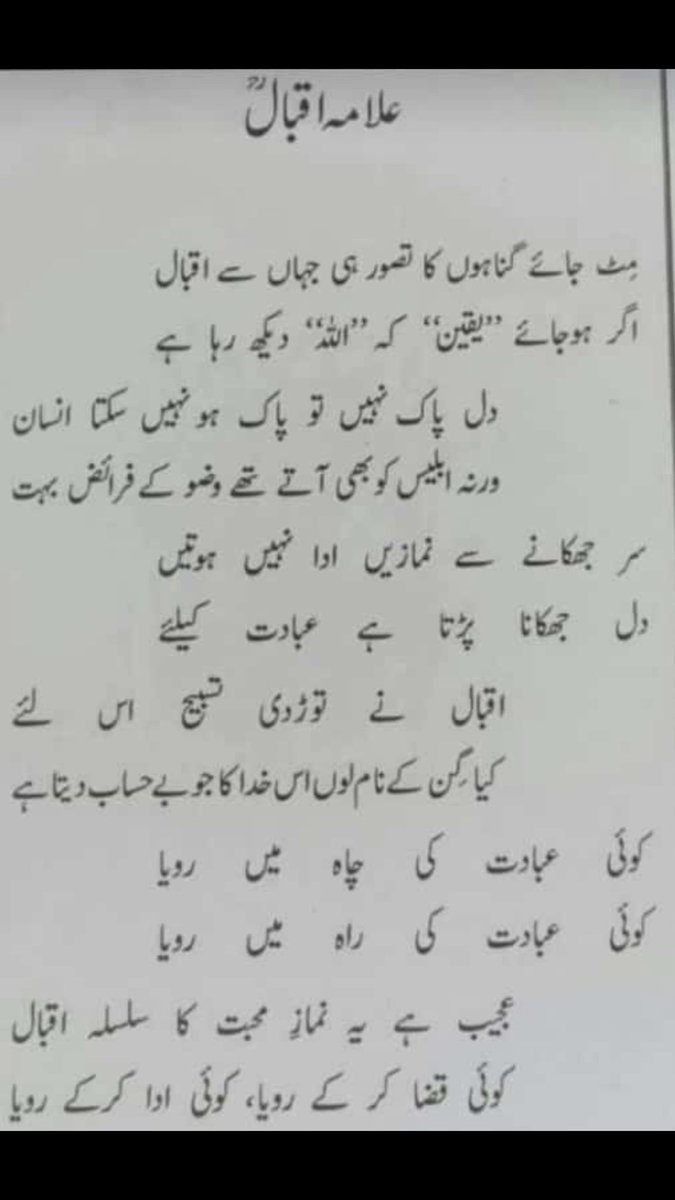 علامہ اقبالؒ
مِٹ جائے گناہوں کا تصور ہی جہاں سے اقبال
اگر ہوجائے ”یقین“ کہ ”اللہ“ دیکھ رہا ہے
دل پاک نہیں تو پاک ہو نہیں سکتا انسان
ورنہ ابلیس کو بھی آتے تھے وضو کے فرائض بہت
سر جھکانے سے نمازیں ادا نہیں ہوتیں
دل جھکانا پڑتا ہے عبادت کیلئے
اقبال نے توڑدی تسبیح اس لئے
کیا گِن کے نام لوں اس خدا کا جو بے حساب دیتا ہے
کوئی عبادت کی چاہ میں رویا
کوئی عبادت کی راہ میں رویا
عجیب ہے یہ نمازِ محبت کا سلسلہ اقبال
کوئی قضا کر کے رویا، کوئی ادا کرکے رویا